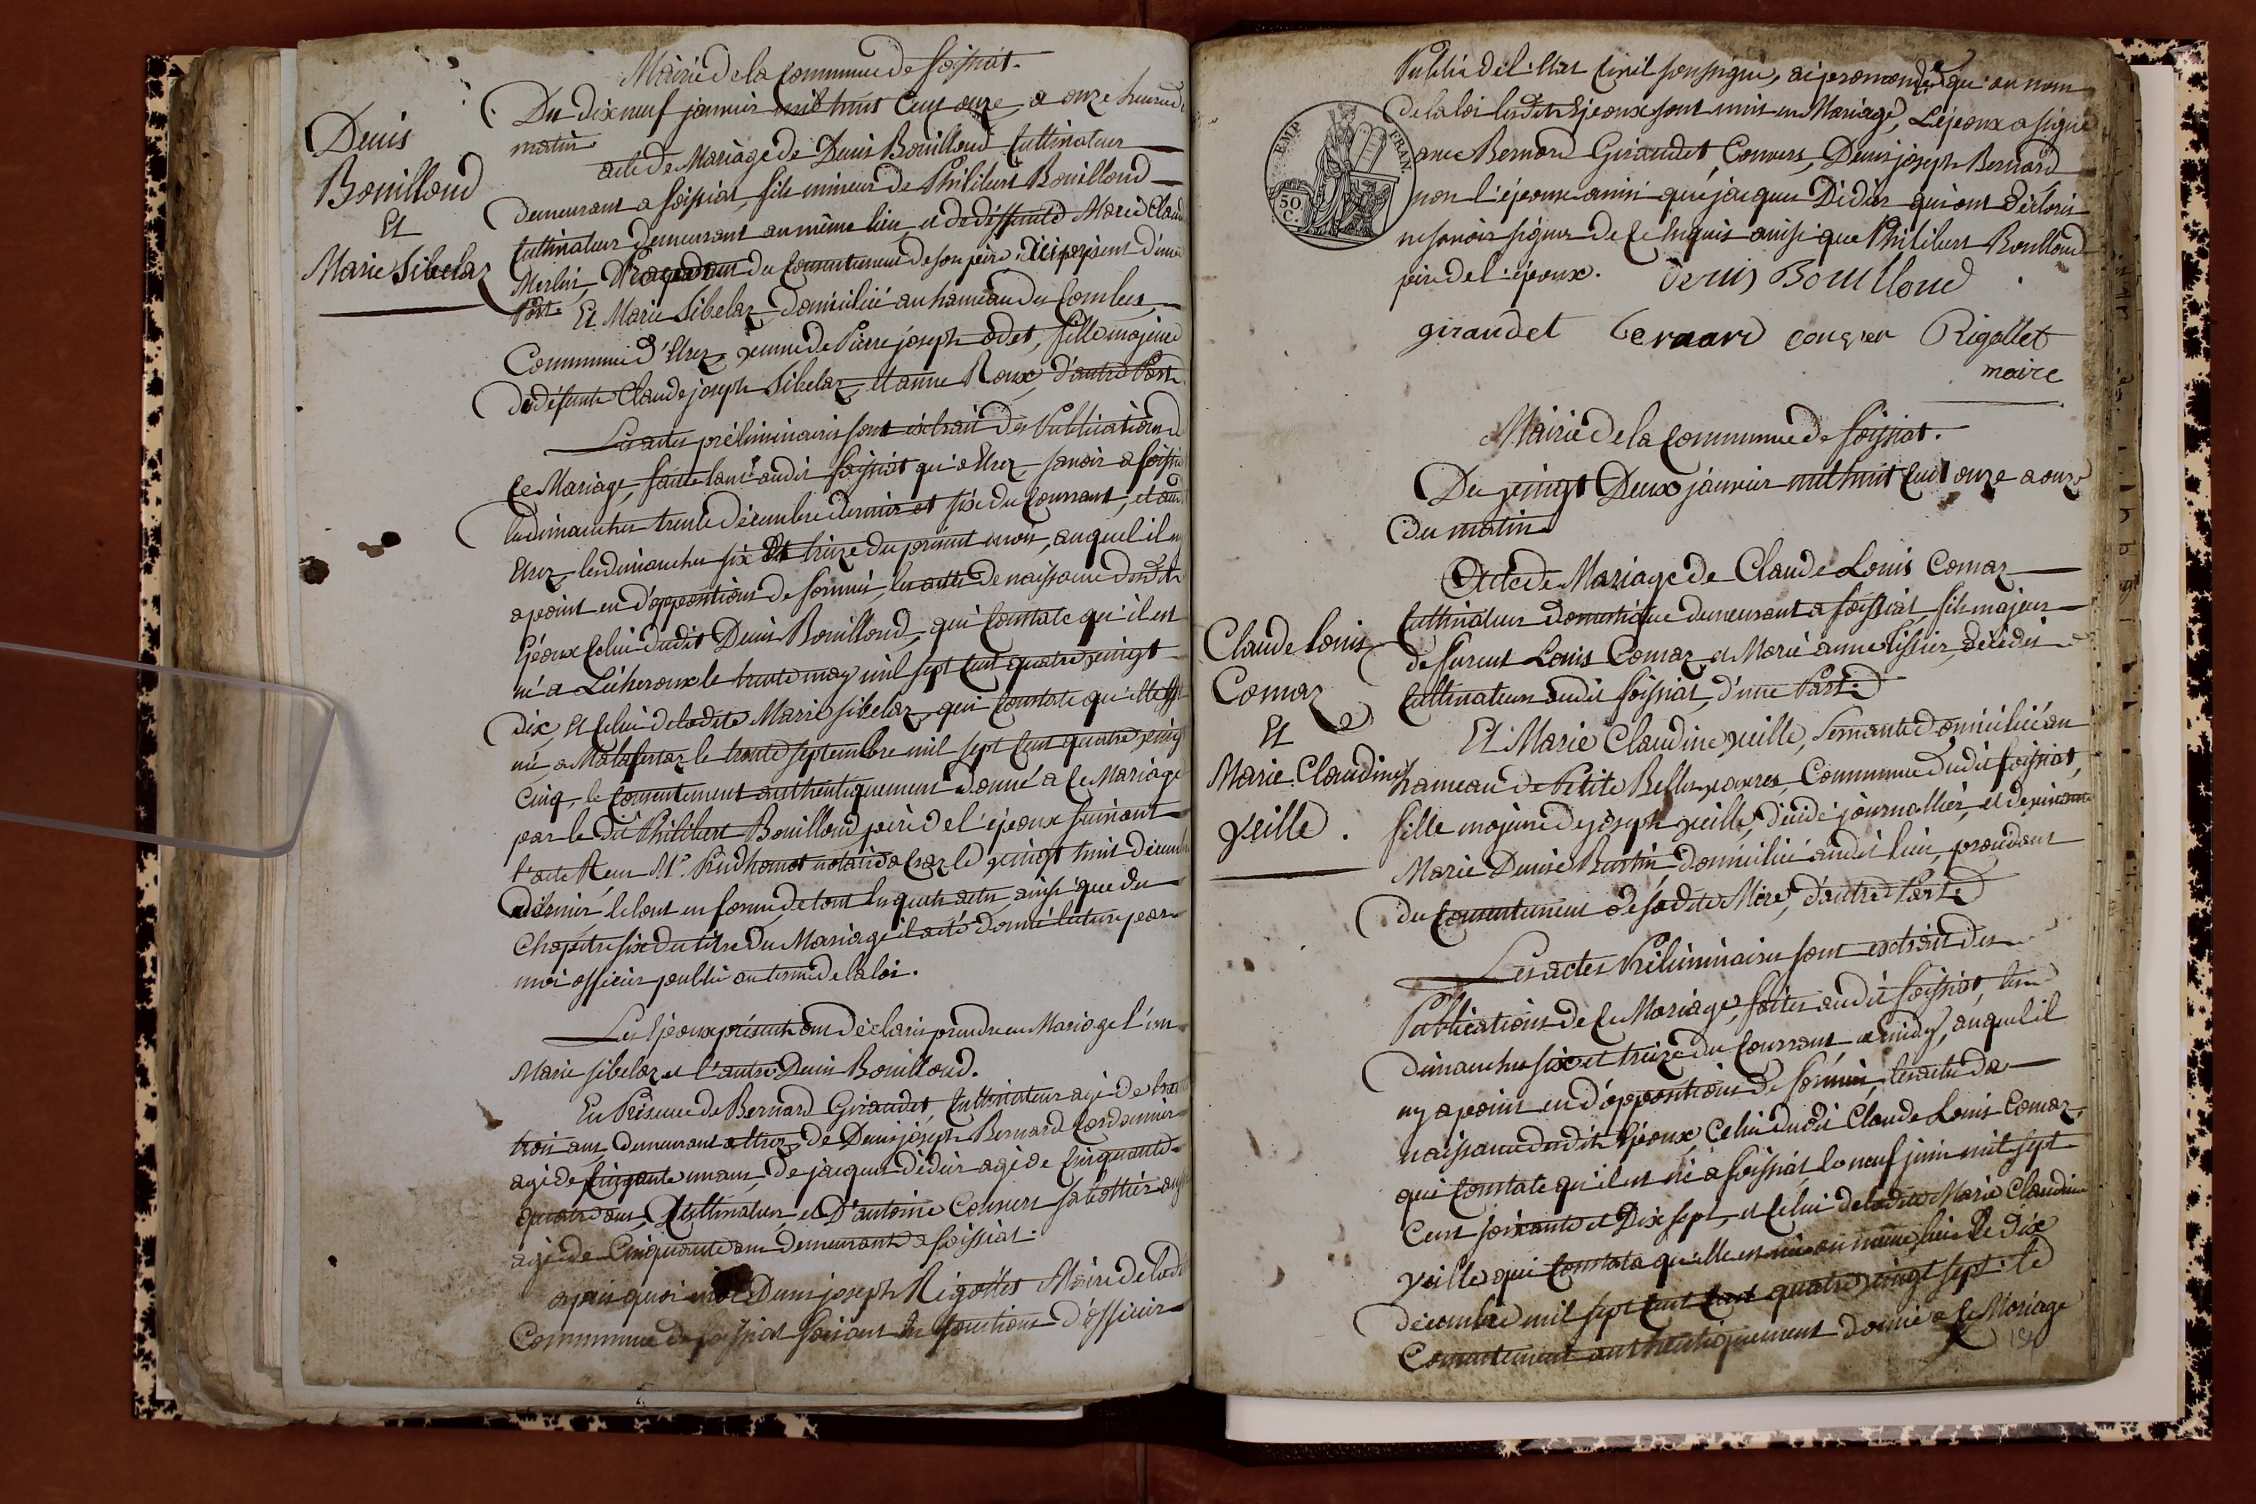 Mairie de la Commune de foissiat.
Du dix neuf janvier mil huit Cent onze, a onze heures du
matin
acte de Mariage de Denis Bouilloud Cultivateur
demeurant a foissiat, fils mineur de Philibert Bouilloud
Cultivateur demeurant au même lieu, et de déffunte Marie Claud
Merlin, du Consentement de son père ici present d'une
Part. Et Marie Sibelaz, domiciliée au hameau du
Commune d'Etrez, veuve de Pierre joseph odet, fille majeure
de défunts Claude joseph Sibelaz, et anne Roux, d'autre Part
Denis
Bouilloud
Et
Marie Sibelaz
Les actes préliminaires sont extrait des Publications de
Ce Mariage, faites tant audit foissiat qu'a Etrez, savoir a foissiat
les dimanches trente décembre dernier et six du Courrant, et aud
Etrez, les dimanches six et treize du présent mois, auquel il n'y
a point eu d'oppositions de formés, les actes de naissance desdits
Epoux Celui dudit Denis Bouilloud, qui Constate qu'il est
né a Lécheroux le trente may mil sept Cent quatre vingt
dix, Et Celui de ladite Marie Sibelaz, qui Constate qu'elle est
née a Malafretaz le trente septembre mil sept Cent quatre vingt
Cinq, le Consentement authentiquement donné a Ce Mariage
par le dit Philibert Bouilloud père de l'époux suivant
l'acte Reçu Me. Prudhomot notaire a le vingt huit décembre
dernier, le tout en forme de tout lesquels actes, ainsi que du
Chapitre six du titre du Mariage il a été donné lecture par
moi officier public au terme de la loi.
Les Epoux présents ont déclaré prendre en Mariage l'un
Marie Sibelaz et l'autre Denis Bouilloud.
En Présence de Bernard Giraudet, Cultivateur agé de trente
trois ans, demeurant a Etrez, de Denis joseph Bernard Cordonnier
agé de Cinquante un ans, de jacques didier agé de Cinquante
quatre ans, Cultivateur, et D'antoine Convers sabottier
agé de Cinquante ans demeurants a foissiat.
apres quoi moi Denis joseph Rigollet Maire de ladite
Commune de foissiat faisant les fonctions d'officier
Public de l'Etat Civil soussigné, ai prononcé qu'au nom
de la loi lesdits Epoux sont unis en Mariage, L'époux a signé
avec Bernard Giraudet, Convers, Denis joseph Bernard
non l'épouse ainsi que jacques Didier qui ont déclaré
ne savoir signer de Ce Enquis ainsi que Philibert Bouilloud
père de l'époux.
EMP. FRAN.
50
C.
denis Bouilloud
giraudet bernard conver Rigollet
maire
Mairie de la Commune de foissiat.
Du vingt Deux janvier mil huit Cent onze a onze
du matin
Acte de Mariage de Claude Louis Comaz
Cultivateur domestique demeurant a foissiat, fils majeur
de furent Louis Comaz et Marie anne Tissier, décédés
Cultivateurs audit foissiat, d'une Part.
Claude Louis
Comaz
Et
Marie Claudine
Veille.
Et Marie Claudine veille, servante domiciliée au
hameau de Petite Bellesvavres, Commune dudit foissiat,
fille majeure de joseph veille, décédé journallier, et de vivante
Marie Denise Burtin domiciliée audit lieu, procédant
du Consentement de sa dite Mère, d'autre Part
Les actes Préliminaires sont extrait des
Publications de Ce Mariage, faites audit foissiat, les
dimanches six et treize du Courrant a midy, auquel il
n'y a point eu d'oppositions de formés, les actes de
naissance desdits Epoux, Celui dudit Claude Louis Comaz,
qui Constate qu'il est né a foissiat, le neuf juin mil sept
Cent soixante et Dix sept, et Celui de ladite Marie Claudine
Veille qui Constate qu'elle est née au même lieu le dix
décembre mil sept Cent Cent quatre vingt sept. le
Consentement authentiquement donné a Ce Mariage